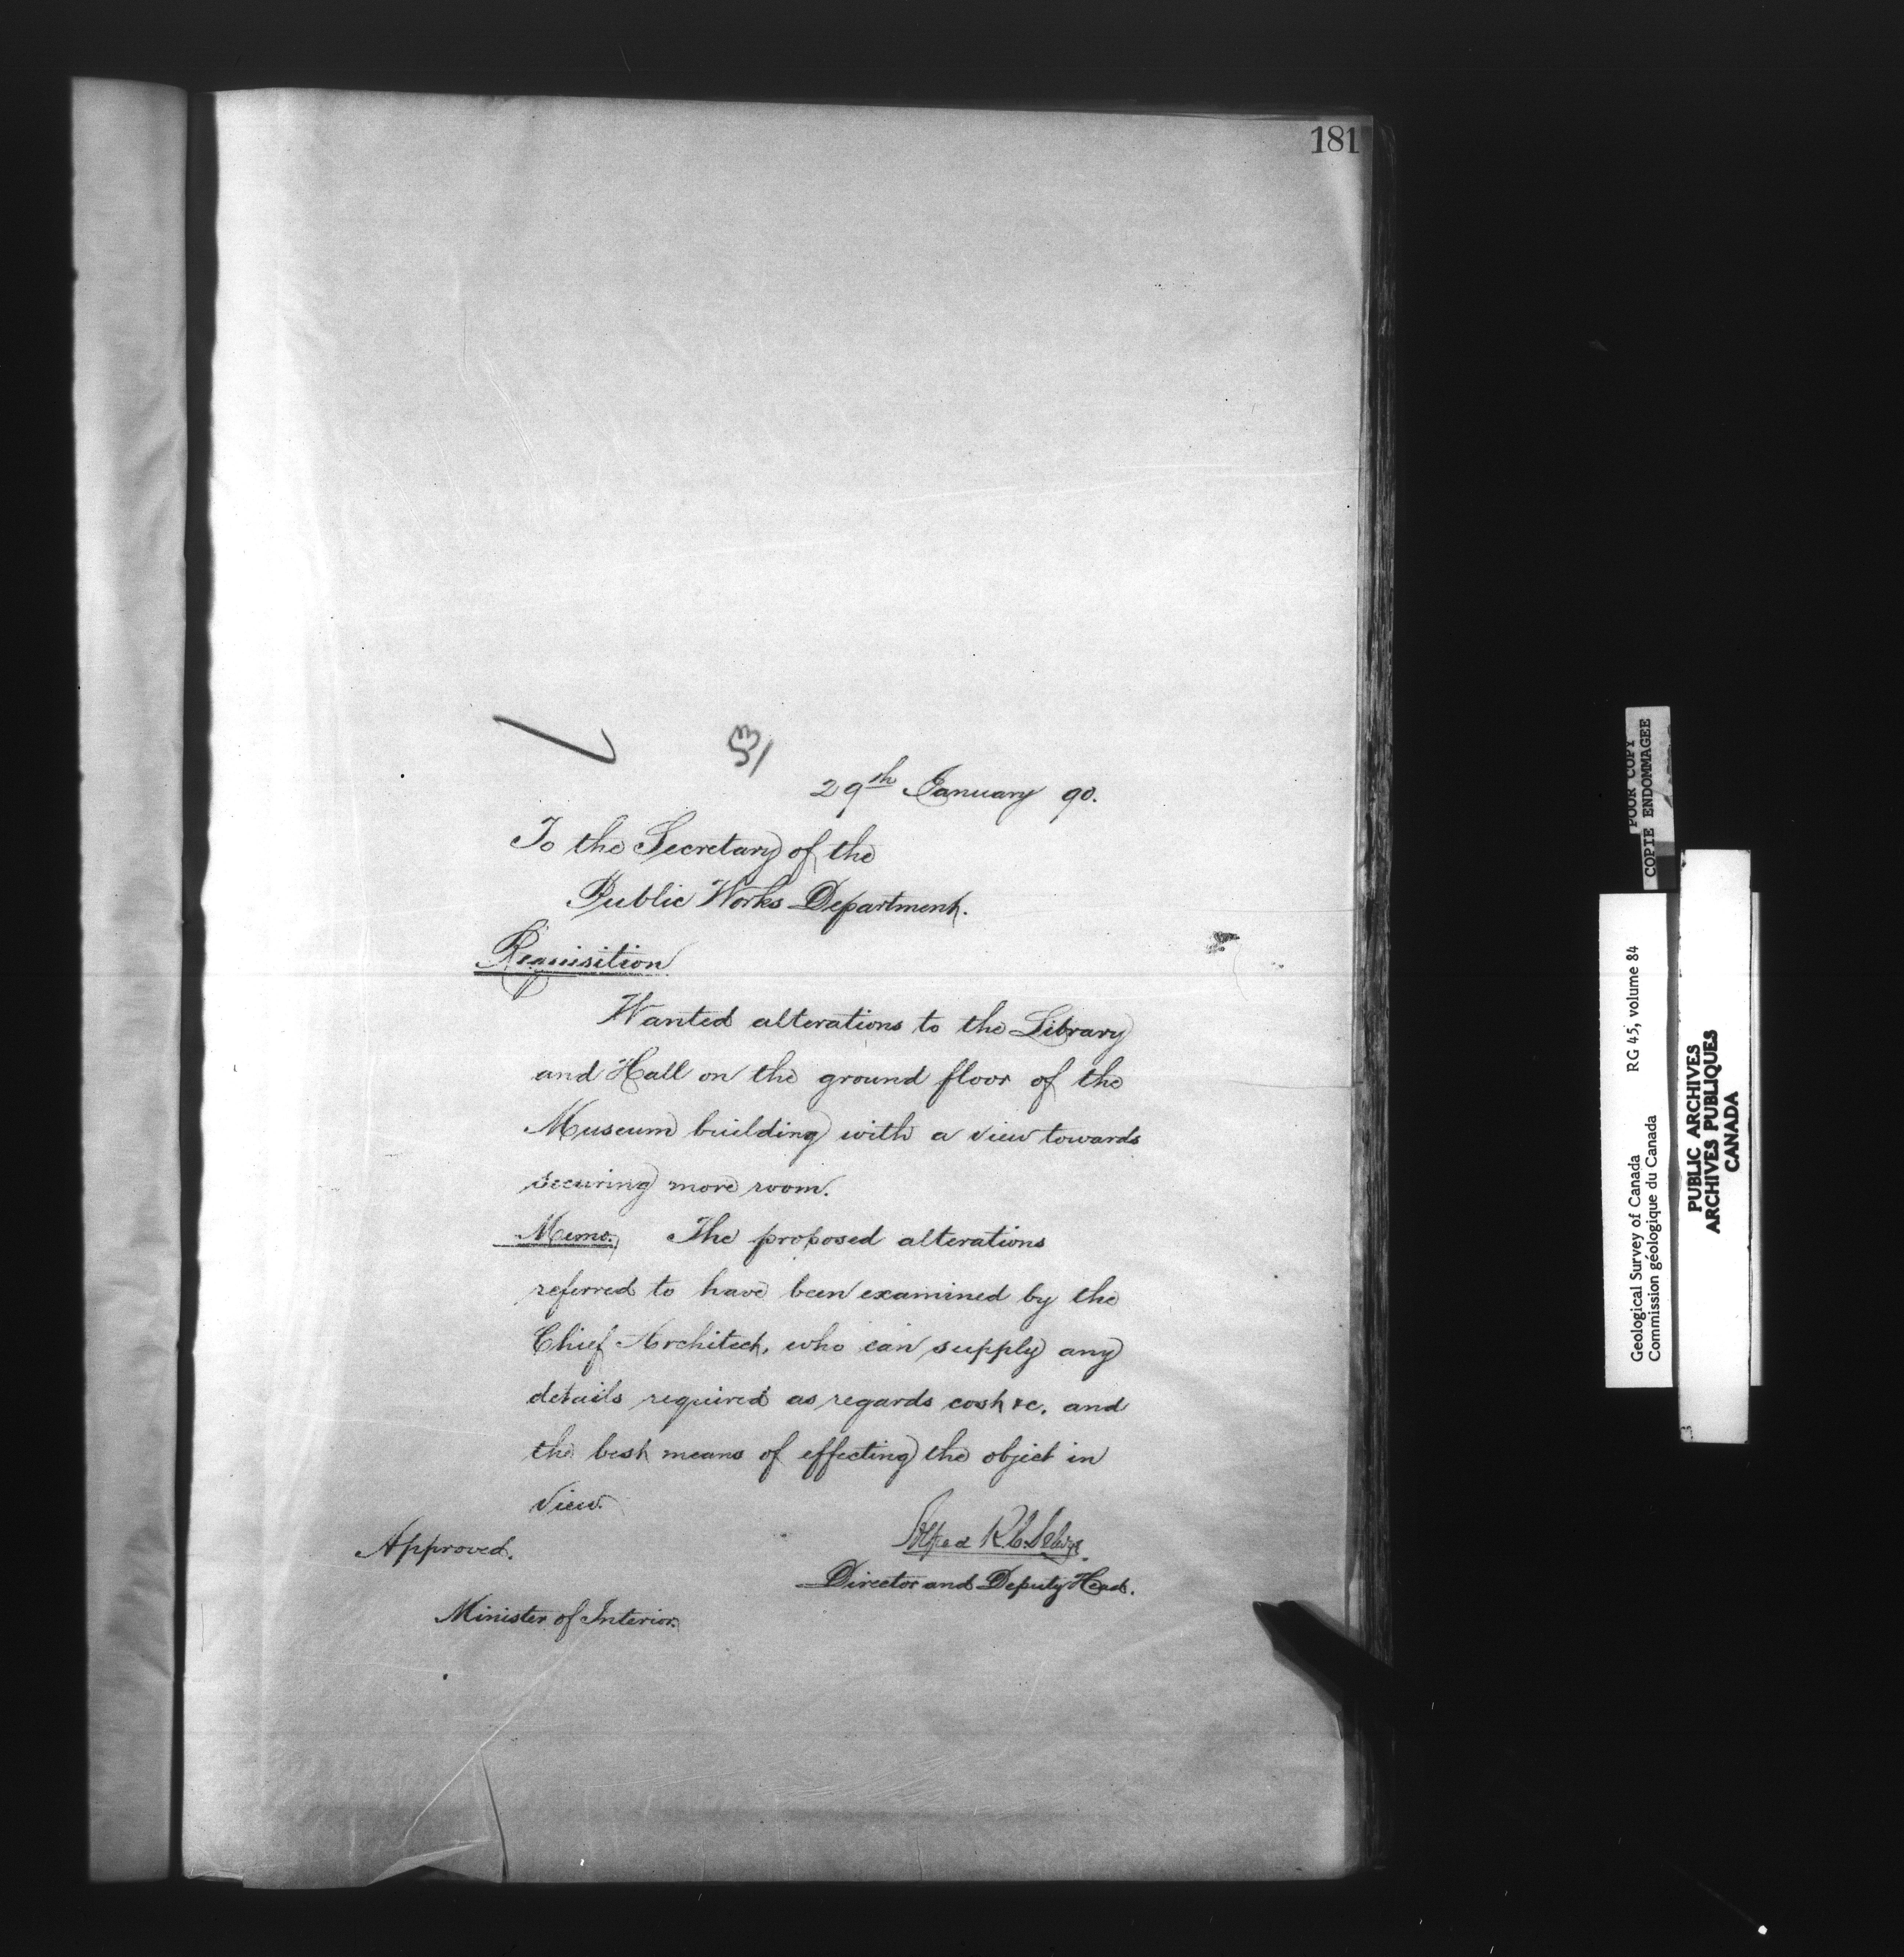 181
29th January 90.
To the Secretary of the
Public Works Department.
Requisition
Wanted alterations to the Library
and Hall on the ground floor of the
Museum building with a view towards
securing more room.
Memo. The proposed alterations
referred to have been examined by the
Chief Architect, who can supply any
details required as regards cost &c. and
the best means of effecting the object in
view.
Alfred R. C. Selwyn
Approved.
Director and Deputy Head.
Minister of Interior.
POOR COPY
COPIE ENDOMMAGEE
Geological Survey of Canada RG 45, volume 84
Commission géologique du Canada
PUBLIC ARCHIVES
ARCHIVES PUBLIQUES
CANADA